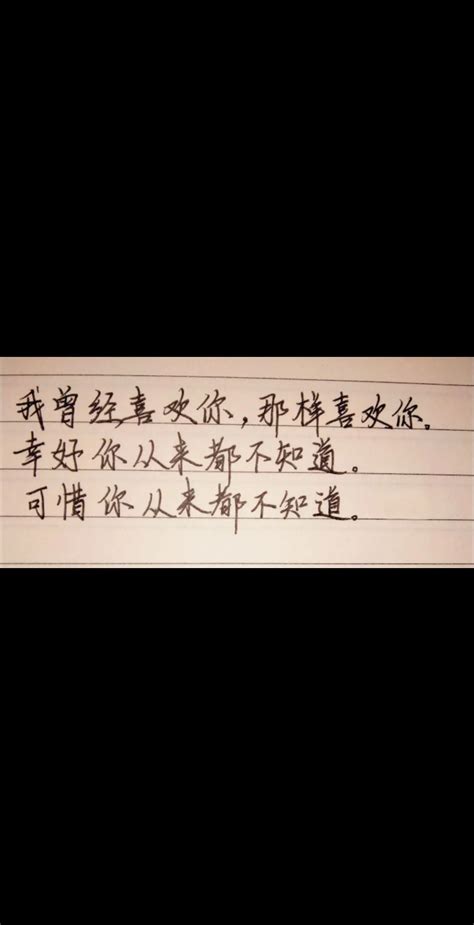 我曾经喜欢你,那样喜欢你。
幸好你从来都不知道。
可惜你从来都不知道。